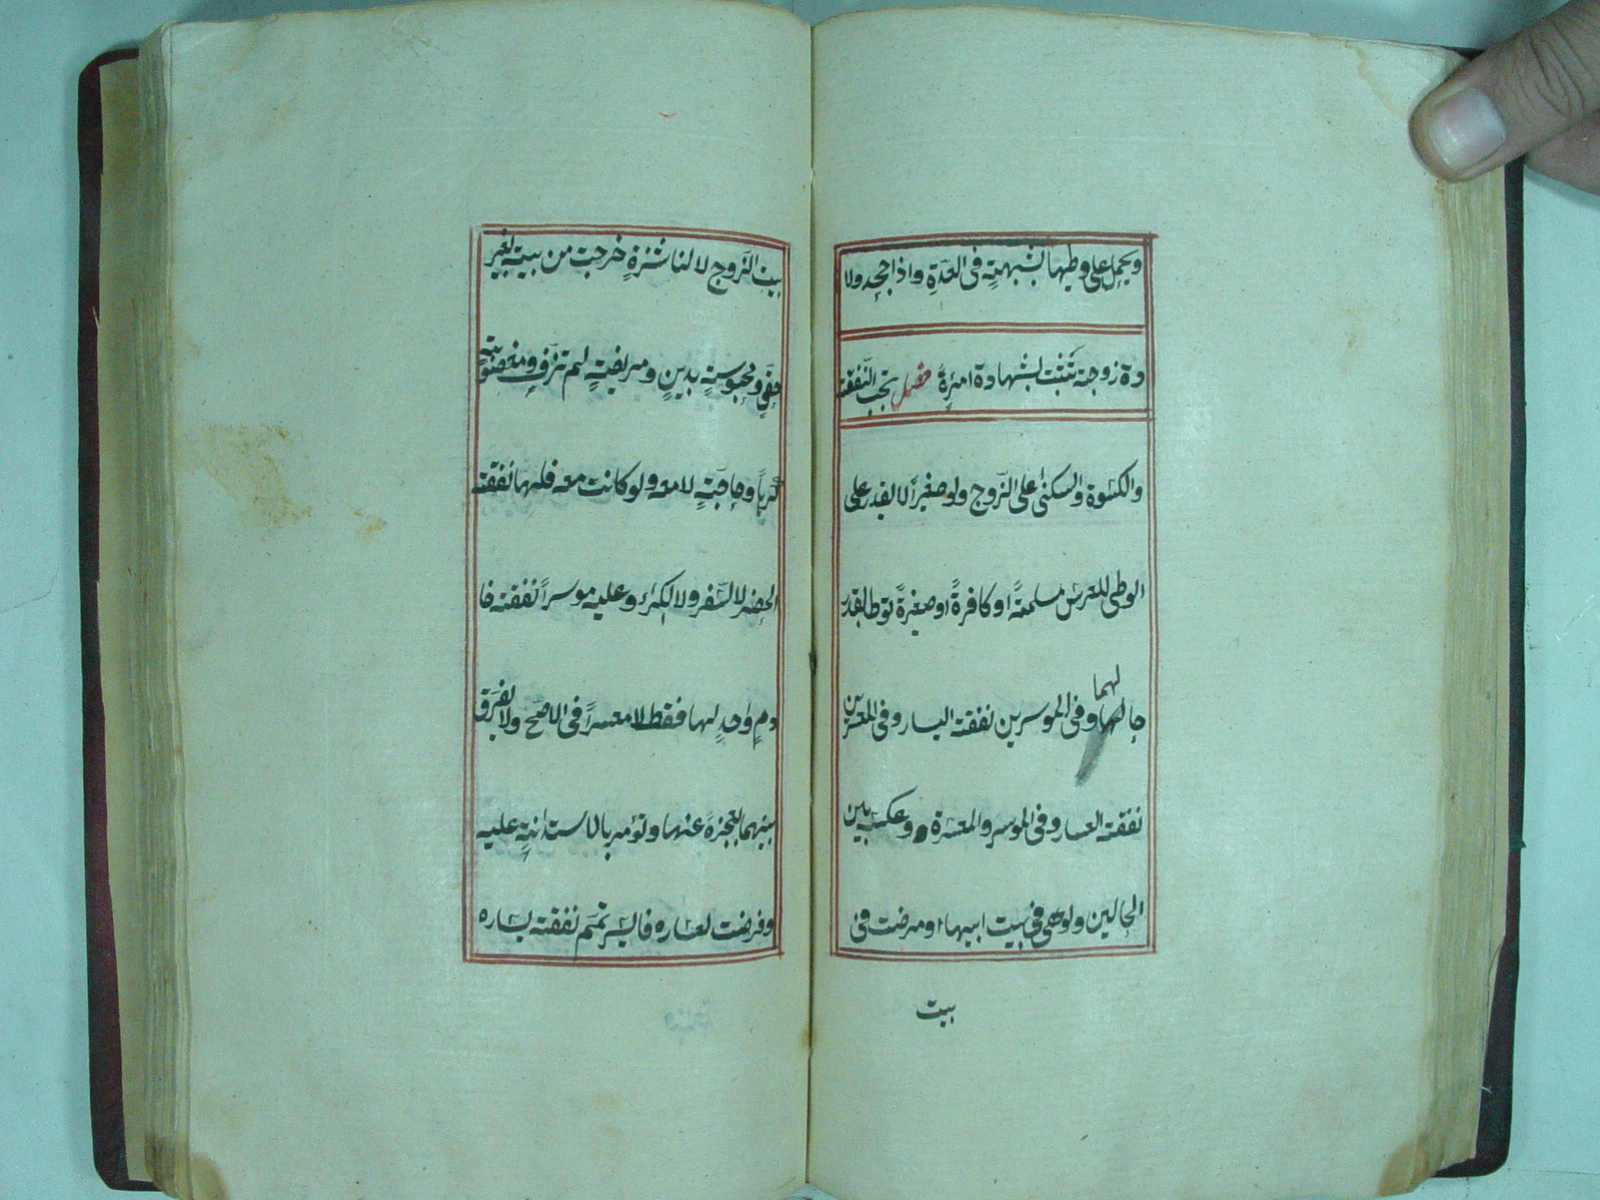 ويحمل على وطيها بشبهة فى العدة واذا جحد ولا
دة زوجة تثبت بشهادة امرةٍ فصل تجب النفقة
والكسوة والسكنى على الزوج ولو صغيراً لا يقدر على
الوطى للعرس مسلمةً او كافرةً او صغيرةً توطا بقدر
لهما
حالهما وفى الموسرين نفقة اليسار وفى المعسرين
نفقة العسار وفى الموسر والمعسرة وعكسه بين
الحالين ولو هى فى بيت ابيها او مرضت فى
بيت
بيت الزوج لا لناشزةٍ خرجت من بيته بغير
حقٍ ومحبوسةٍ بدينٍ ومريضةٍ لم تزف ومغصوبةٍ
كرهاً وحاجّةٍ لا معه ولو كانت معه فلها نفقة
الحضر لا السفر ولا الكراء وعليه موسراً نفقة خا
دمٍ واحدٍ لها فقط لا معسراً فى الاصح ولا يفرق
بينهما لعجزه عنها وتؤمر بالاستدانة عليه
وفرضت لعساره فايسر تمم نفقة يساره